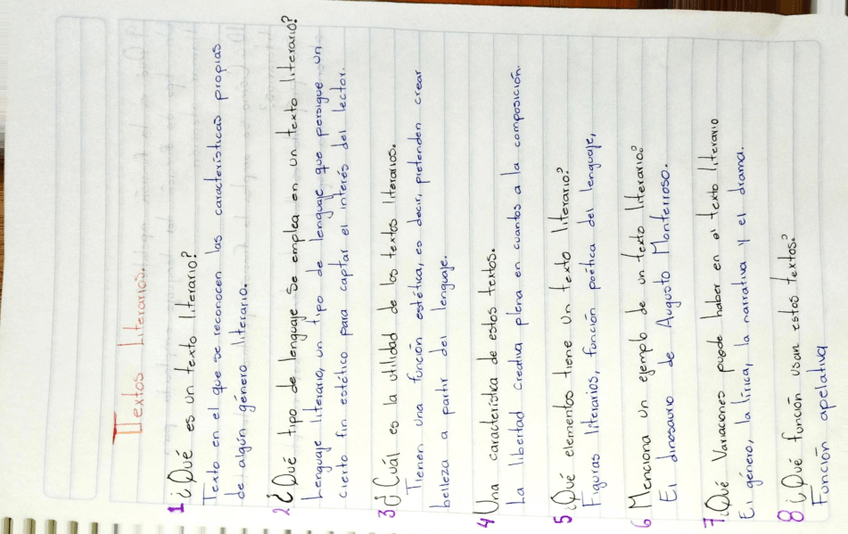 Textos Literarios.
1 ¿Qué es un texto literario?
Texto en el que se reconocen las características propias
de algún género literario.
2 ¿Qué tipo de lenguaje se emplea en un texto literario?
Lenguaje literario, un tipo de lenguaje que persigue un
cierto fin estético para captar el interés del lector.
3 ¿Cuál es la utilidad de los textos literarios.
Tienen una función estética, es decir, pretenden crear
belleza a partir del lenguaje.
4 Una característica de estos textos.
La libertad creativa plena en cuantos a la composición.
5 ¿Qué elementos tiene un texto literario?
Figuras literarios, función poética del lenguaje,
6 Menciona un ejemplo de un texto literario?
El dinosaurio de Augusto Monterroso.
7 ¿Qué Variaciones puede haber en el texto literario
El género, la lírica, la narrativa y el drama.
8 ¿Qué función usan estos textos?
Función apelativa